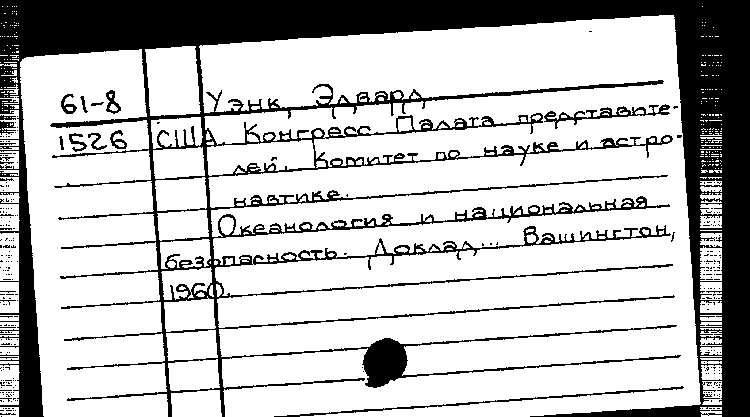 61-8 Уэнк, Эдвард
1526 США. Конгресс. Палата представите-
лей. Комитет по науке и астро-
навтике.
Океанология и национальная
безопасность. Доклад... Вашингтон,
1960.